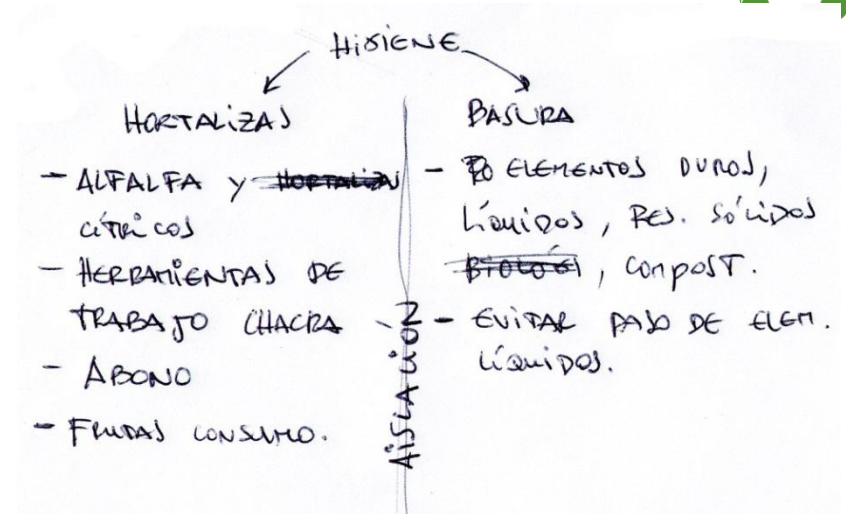 HIGIENE
HORTALIZAS
- ALFALFA Y HORTALIZAS
CÍTRICOS
- HERRAMIENTAS DE
TRABAJO CHACRA
- ABONO
- FRUTAS CONSUMO.
AISLACIÓN
BASURA
- ELEMENTOS DUROS,
LÍQUIDOS, RES. SÓLIDOS
, COMPOST.
- EVITAR PASO DE ELEM.
LÍQUIDOS.